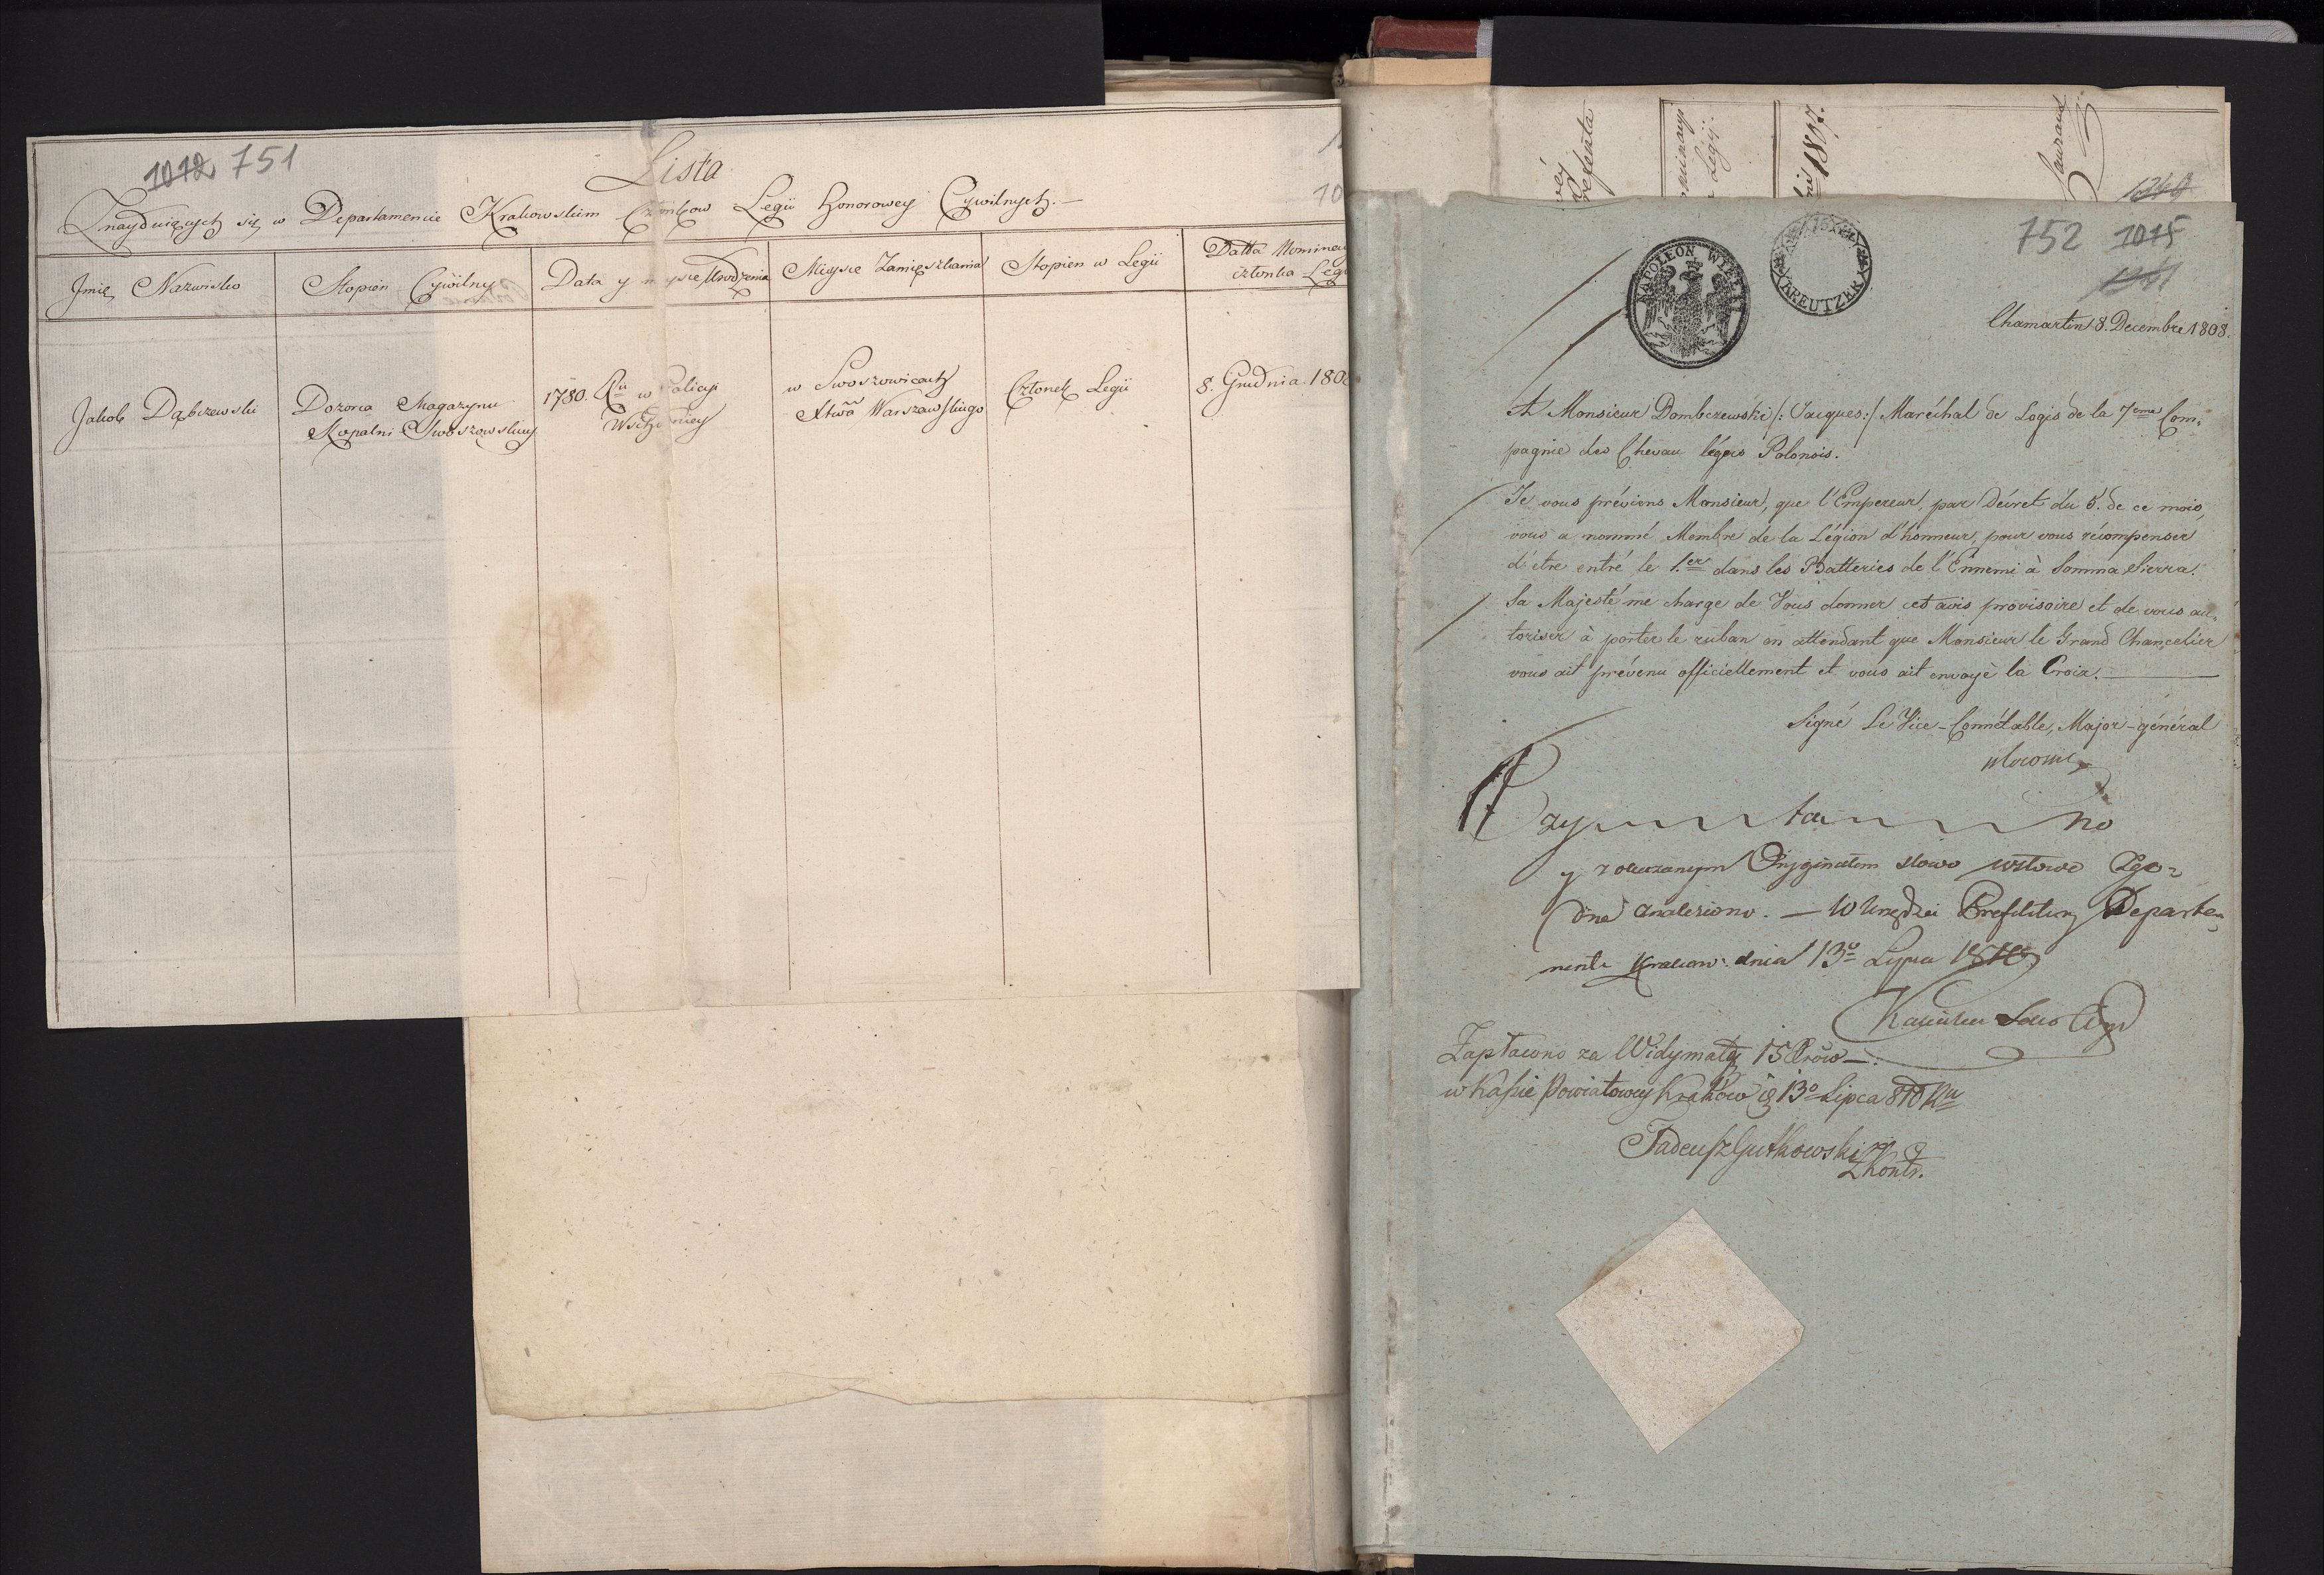 1012 751
Lista
Znayduiących się w Departamencie Krakowskim Członkow Legii Honorowey Cywilnych. —
Jmię Nazwisko
Stopien Cywilny
Data y mieysce Urodzenia
Mieysce Zamięszkania
Stopien w Legii
Datta Nominacyi
członka Legii
Jakob Dąbczewski
Dozorca Magazynu
Kopalni Swoszowskiey
1780. Ru w Galicyi
Wschodniey
w Swoszowicach
Xtwa Warszawskiego
Członek Legii
8. Grudnia 180
10
1807.
1240
752 1015
1241
NAPOLEON WIELKI
KREUTZER
Chamartin 8. Decembre 1808.
A Monsieur Dombczewski /: Jacques :/ Maréchal de Logis de la 7eme Com-
pagnie des Chevau légers Polonois.
Je vous préviens Monsieur, que l'Empereur, par Décret du 5. de ce mois,
vous a nommé Membre de la Légion d'honneur, pour vous récompenser
d'être entré le 1.er dans les Batteries de l'Ennemi à Somma Sierra.
Sa Majesté me charge de Vous donner cet avis provisoire et de vous au-
toriser à porter le ruban en attendant que Monsieur le Grand Chancelier
vous ait prévenu officiellement et vous ait envoyé la Croix. —
Signé Le Vice-Connétable, Major-général
Czytano
y z okazanym Oryginałem słowo w słowo Zgo-
dne znaleziono. — W Urzędzie Prefektury Departa-
mentu Krakow: dnia 13o Lipca 1810
Zapłacono za Widymatę 15 Xrów —
w Kassie Powiatowey Kraków d 13o Lipca 810 Ru
Tadeusz Gutkowski